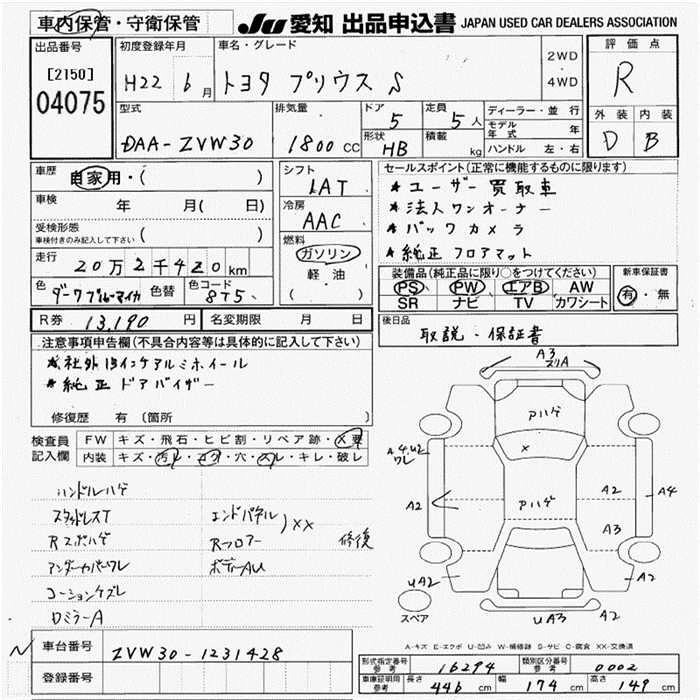 車内保管・守衛保管
JU 愛知 出品申込書 JAPAN USED CAR DEALERS ASSOCIATION
出品番号 初度登録年月 車名・グレード 評価点
[2150] 2WD
04075 H22 6月 トヨタ プリウス S ・ R
4WD
型式 排気量 ドア 定員 ディーラー・並行 外装 内装
DAA-ZVW30 1800 CC 5 5人 モデル年式 年 D B
形状 HB 積載 kg ハンドル 左・右
車歴 自家用・( ) シフト セールスポイント(正常に機能するものに限ります)
LAT ★ユーザー買取車
車検 年 月( 日) 冷房 ★法人ワンオーナー
受検形態 ( ) AAC ★バックカメラ
車検付きのみ記入して下さい 燃料 ★純正フロアマット
走行 20万2千420km ガソリン 装備品(純正品に限り○をつけてください) 新車保証書
軽油 PS PW エアB AW 有・無
色 ダークブルーマイカ 色替 色コード 8T5 ( ) SR ナビ TV カワシート
R券 13,190円 名変期限 月 日 後日品
取説・保証書
注意事項申告欄(不具合内容等は具体的に記入して下さい)
★社外15インチアルミホイール
★純正ドアバイザー
修復歴 有(箇所 )
検査員 FW キズ・飛石・ヒビ割・リペア跡・X要
記入欄 内装 キズ・汚レ・コゲ・穴・スレ・キレ・破レ
ハンドルハゲ
スタッドレスT エンドパネル )XX
Rスポハゲ Rフロアー 修復
アンダーカバーワレ ボディーAU
コーションケズレ
ロミラーA
A3
スリA
アハゲ
A4,U2
ワレ
X
A2 アハゲ A2 A4
A3
UA2 A2
スペア UA3 A2
A-キズ E-エクボ U-凹み W-補修跡 S-サビ C-腐食 XX-交換済
N 車台番号 ZVW30-1231428
登録番号
形式指定番号 参考 16294 類別区分番号 参考 0002
車庫証明用 参考 長さ 446 cm 幅 174 cm 高さ 149 cm